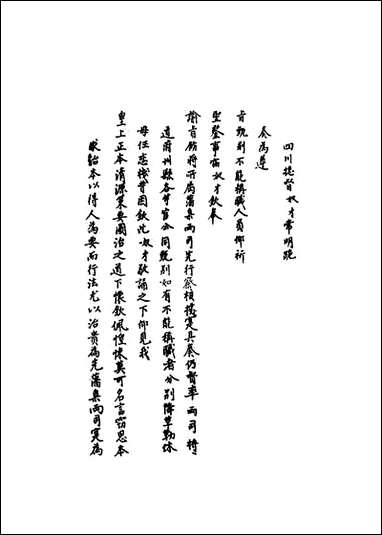 四川總督奴才常明跪
奏為遵
旨甄別不能稱職人員仰祈
聖鑒事竊奴才欽奉
諭旨飭將所屬藩臬兩司先行察核據實具奏仍督率兩司將
道府州縣各等官公同甄別如有不能稱職者分別降革勒休
毋任恋棧等因欽此奴才敬誦之下仰見我
皇上正本清源秉要圖治之道下懷欽佩惶悚莫可名言竊思本
求治本以得人為要而行法尤以治貴為先藩臬兩司寔為